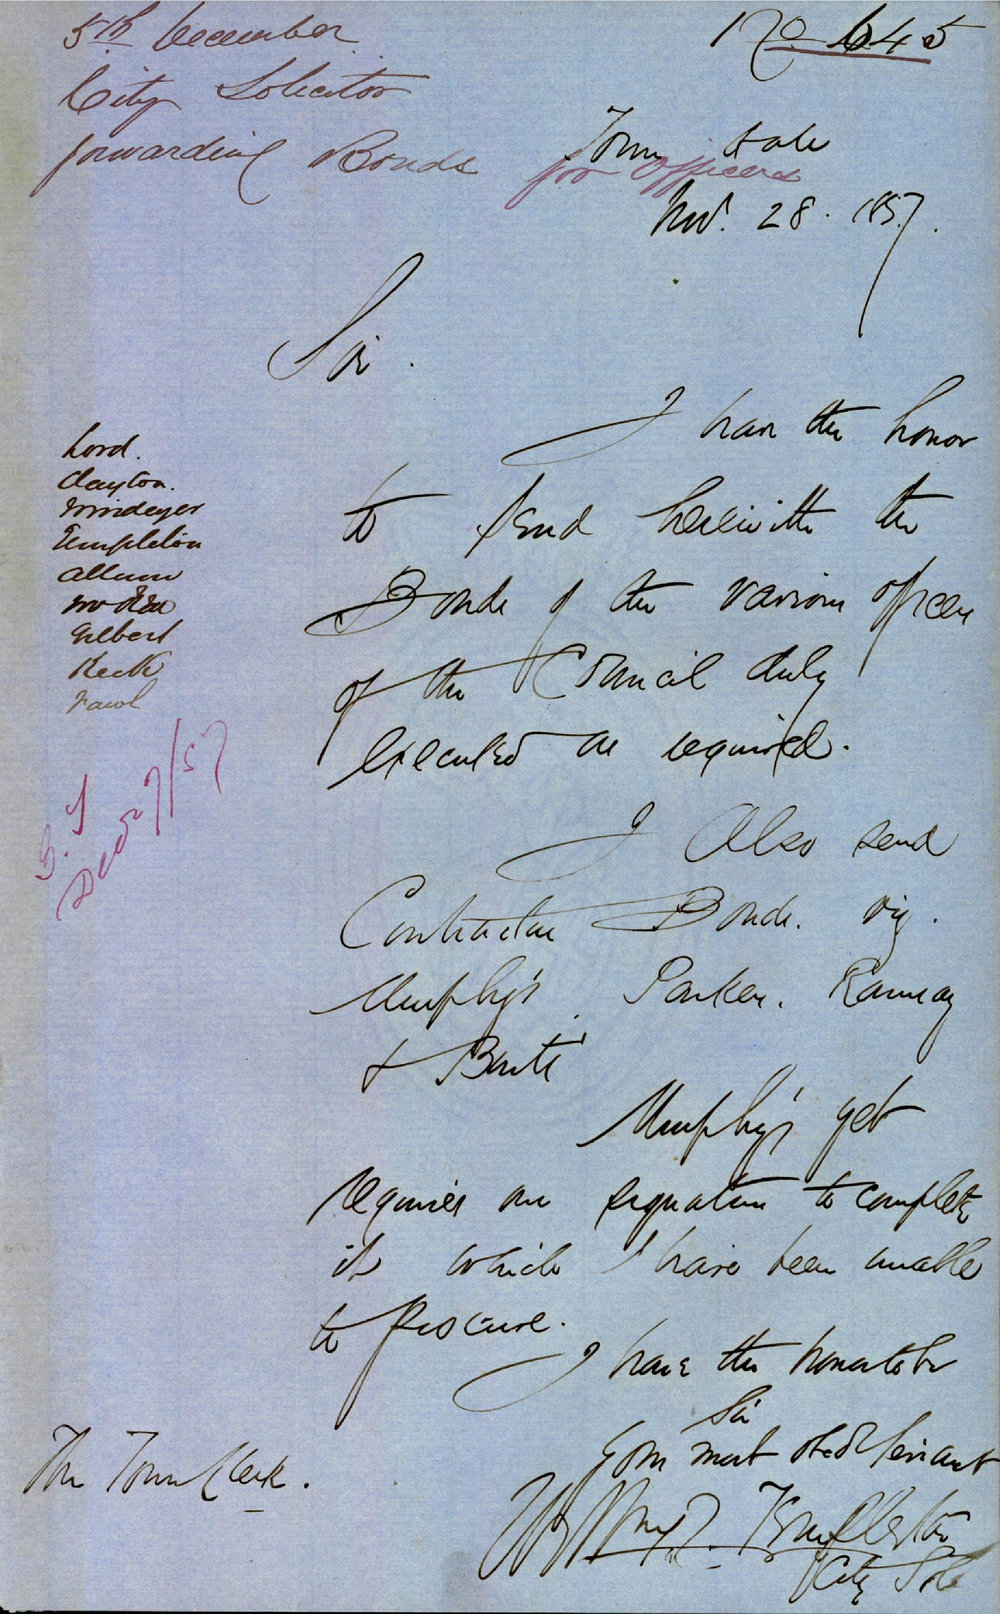 5th December
City Solicitor
forwarding Bonds for Officers
No 645
Town Hall
Nov. 28. 1857.
Sir.
I have the honor
to send herewith the
Bonds of the various officers
of the Council duly
executed as required.
I Also send
Contractors Bonds. viz.
Murphy's Parker. Ramsay
& Bouts'
Murphy's yet
requires one signature to complete
it which I have been unable
to procure.
I have the honor to be
Sir
Your most obed Servant
Templeton
City Sol
The Town Clerk.
Lord.
Clayton.
Windeyer
Templeton
Allum
Gilbert
Keck
Dec 7/57